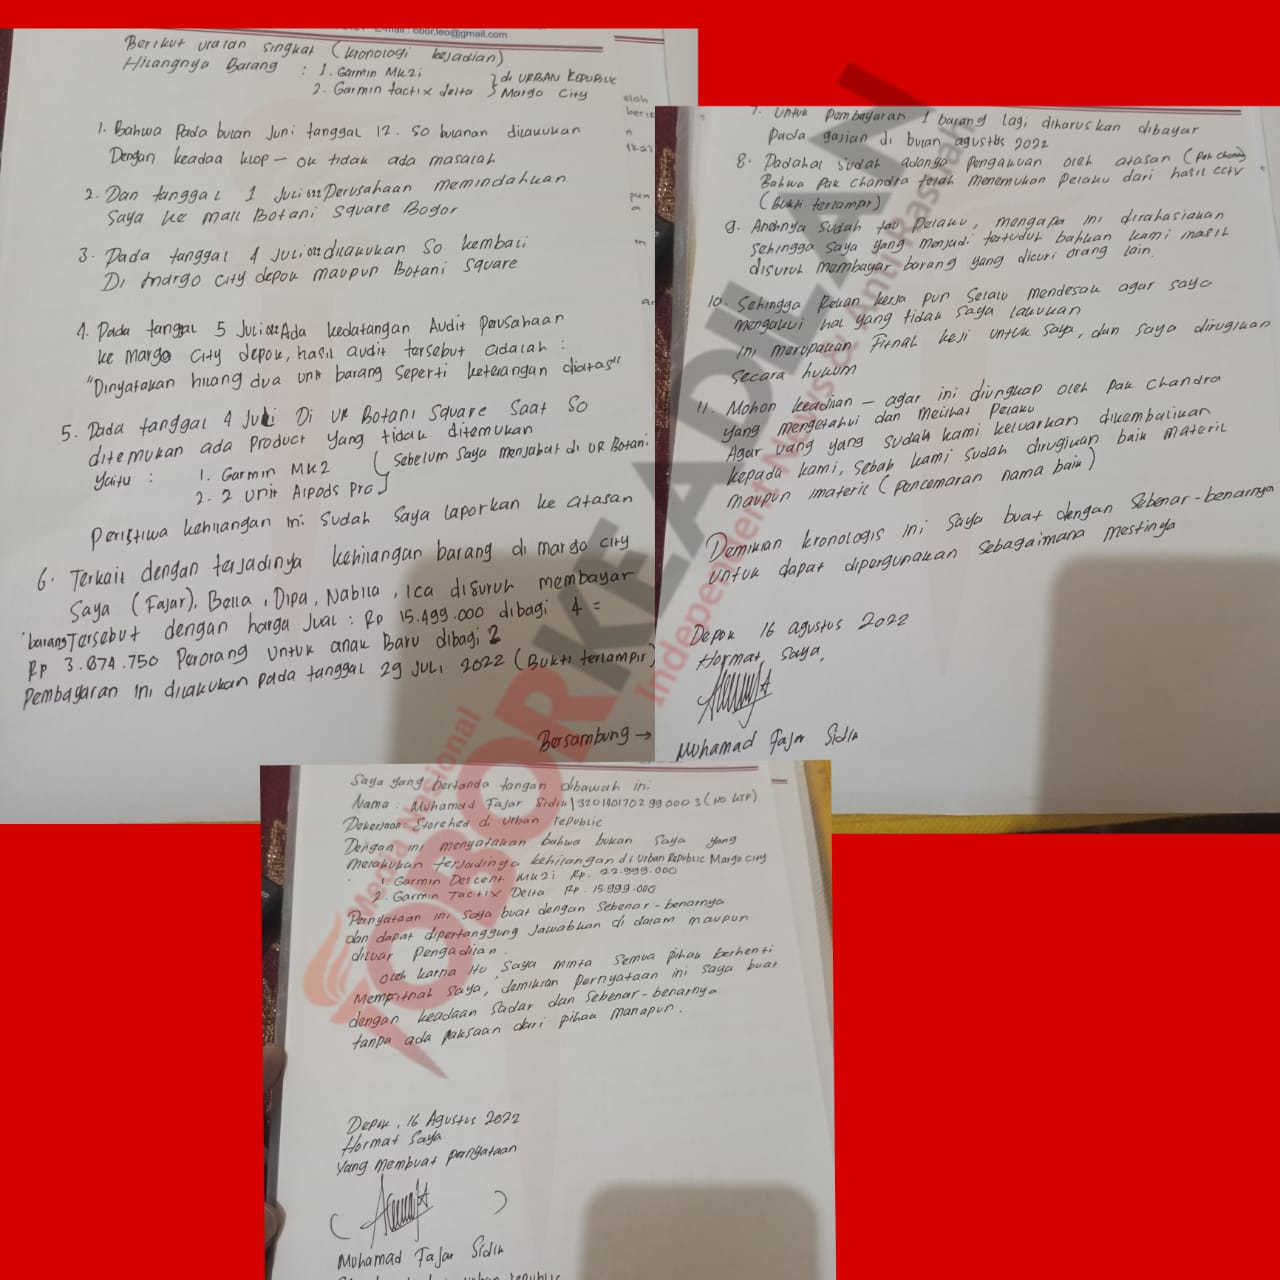 E-mail : obor.leo@gmail.com
Berikut uraian singkat (kronologi kejadian)
Hilangnya Barang : 1. Garmin Mk2i } di URBAN REPUBLIC
2. Garmin tactix delta } Margo City
1. Bahwa Pada bulan Juni tanggal 12. So bulanan dilakukan
Dengan keadaa klop - ok tidak ada masalah
2. Dan tanggal 1 Juli 2022 Perusahaan memindahkan
Saya ke Mall Botani Square Bogor
3. Pada tanggal 4 Juli 2022 dilakukan So kembali
Di Margo City depok maupun Botani Square
4. Pada tanggal 5 Juli 2022 Ada kedatangan Audit Perusahaan
ke Margo City Depok, hasil audit tersebut adalah :
"Dinyatakan hilang dua unit barang seperti keterangan diatas"
5. Pada tanggal 4 Juli Di UR Botani Square Saat So
ditemukan ada Product yang tidak ditemukan
yaitu : 1. Garmin Mk2 ( Sebelum Saya Menjabat di UR Botani.
2. 2 unit Airpods Pro
Peristiwa kehilangan ini Sudah Saya laporkan ke atasan
6. Terkait dengan terjadinya kehilangan barang di Margo City
Saya (Fajar), Bella, Dipa, Nabila, Ica disuruh membayar
barang Tersebut dengan harga Jual : Rp 15.499.000 dibagi 4 =
Rp 3.874.750 Perorang untuk anak Baru dibagi 2
Pembayaran ini dilakukan pada tanggal 29 Juli 2022 (Bukti terlampir)
Bersambung →
7. Untuk Pembayaran 1 barang lagi, diharuskan dibayar
Pada gajian di bulan agustus 2022
8. Padahal Sudah adanya Pengakuan oleh atasan (Pak Chandra)
Bahwa Pak Chandra telah menemukan Pelaku dari hasil CCTV
(Bukti terlampir)
9. Anehnya sudah tau Pelaku, mengapa ini dirahasiakan
Sehingga Saya yang menjadi tertuduh bahkan kami masih
disuruh membayar barang yang dicuri orang lain.
10. Sehingga Rekan kerja pun Selalu Mendesak agar saya
mengakui hal yang tidak Saya lakukan
Ini merupakan Fitnah keji untuk saya, dan saya dirugikan
Secara hukum
11. Mohon keadilan - agar ini diungkap oleh Pak Chandra
yang mengetahui dan melihat Pelaku
Agar uang yang sudah kami keluarkan dikembalikan
kepada kami, Sebab kami sudah dirugikan baik materil
maupun imateril (Pencemaran nama baik)
Demikian kronologis ini Saya buat dengan Sebenar-benarnya
untuk dapat dipergunakan sebagaimana mestinya
Depok 16 agustus 2022
Hormat, Saya,
Muhamad Fajar Sidik
Saya yang bertanda tangan dibawah ini
Nama : Muhamad Fajar Sidik / 3201401702990003 (No KTP)
Pekerjaan : Storehed di urban republic
Dengan ini menyatakan bahwa bukan Saya yang
Melakukan terjadinya kehilangan di Urban Republic Margo City
1. Garmin Descent Mk2i Rp. 22.999.000
2. Garmin Tactix Delta Rp. 15.999.000
Pernyataan ini saya buat dengan Sebenar-benarnya
dan dapat dipertanggung Jawabkan di dalam maupun
diluar Pengadilan.
Oleh karna itu Saya minta Semua pihak berhenti
Mempitnah Saya, demikian Pernyataan ini saya buat
dengan keadaan Sadar dan Sebenar-benarnya
tanpa ada paksaan dari pihak manapun.
Depok, 16 Agustus 2022
Hormat Saya
Yang Membuat pernyataan
Muhamad Fajar Sidik
OBORKEADILAN
Morald Nasional
Independent News & Anti Rasuah